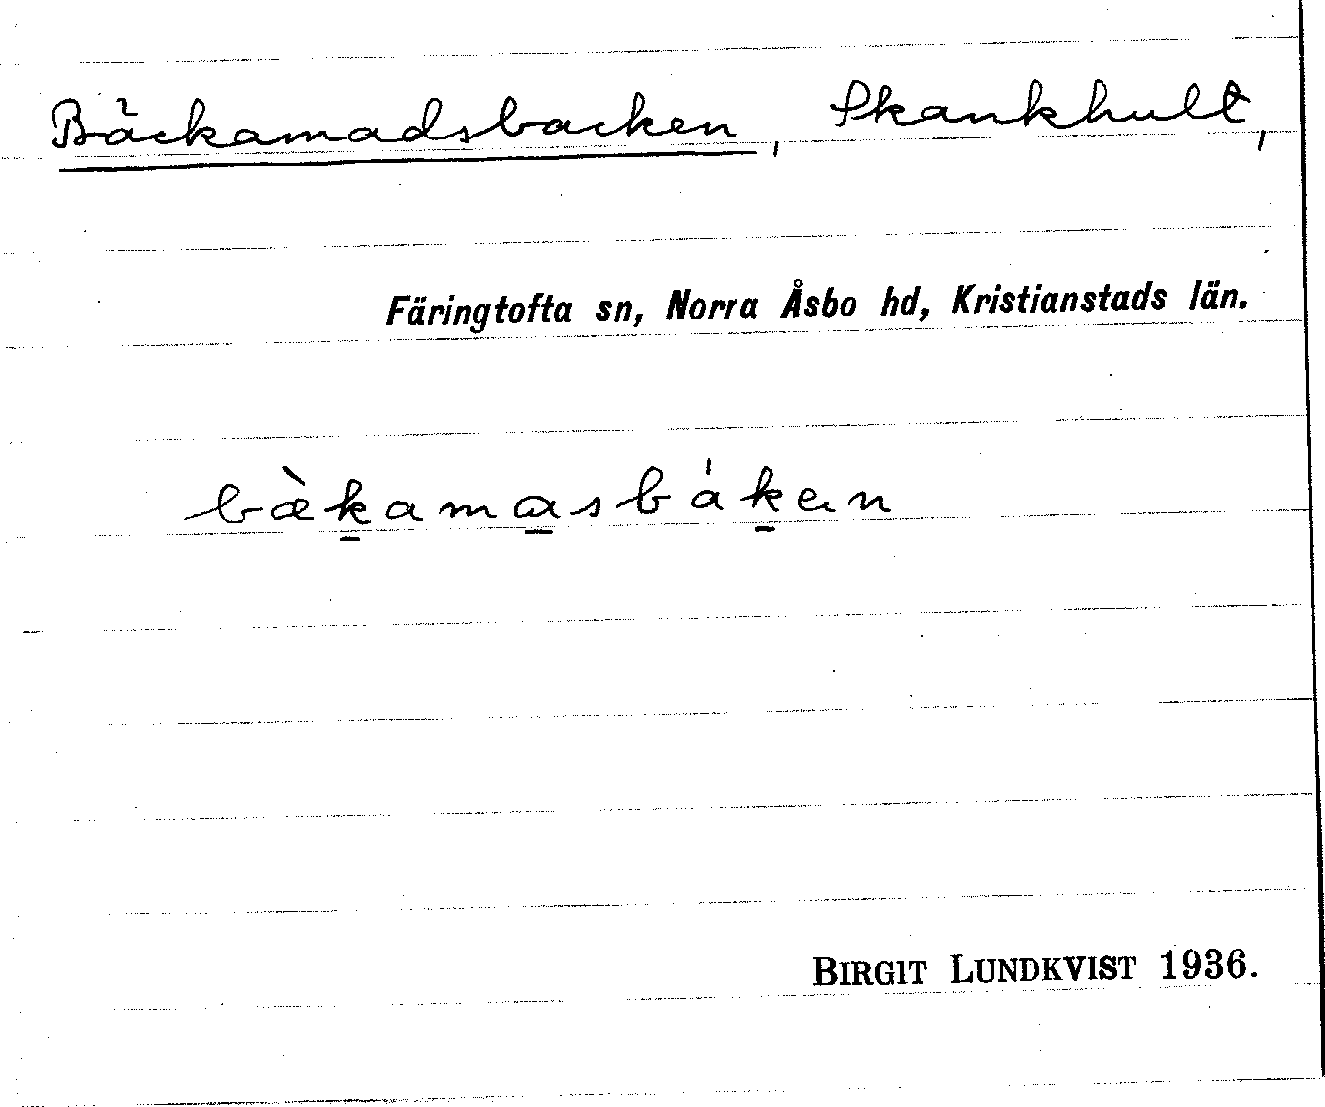 Bäckamadsbacken, Skankhult,
Färingtofta sn, Norra Åsbo hd, Kristianstads län.
bæ̀k̠ama̠sbák̠ən
BIRGIT LUNDKVIST 1936.